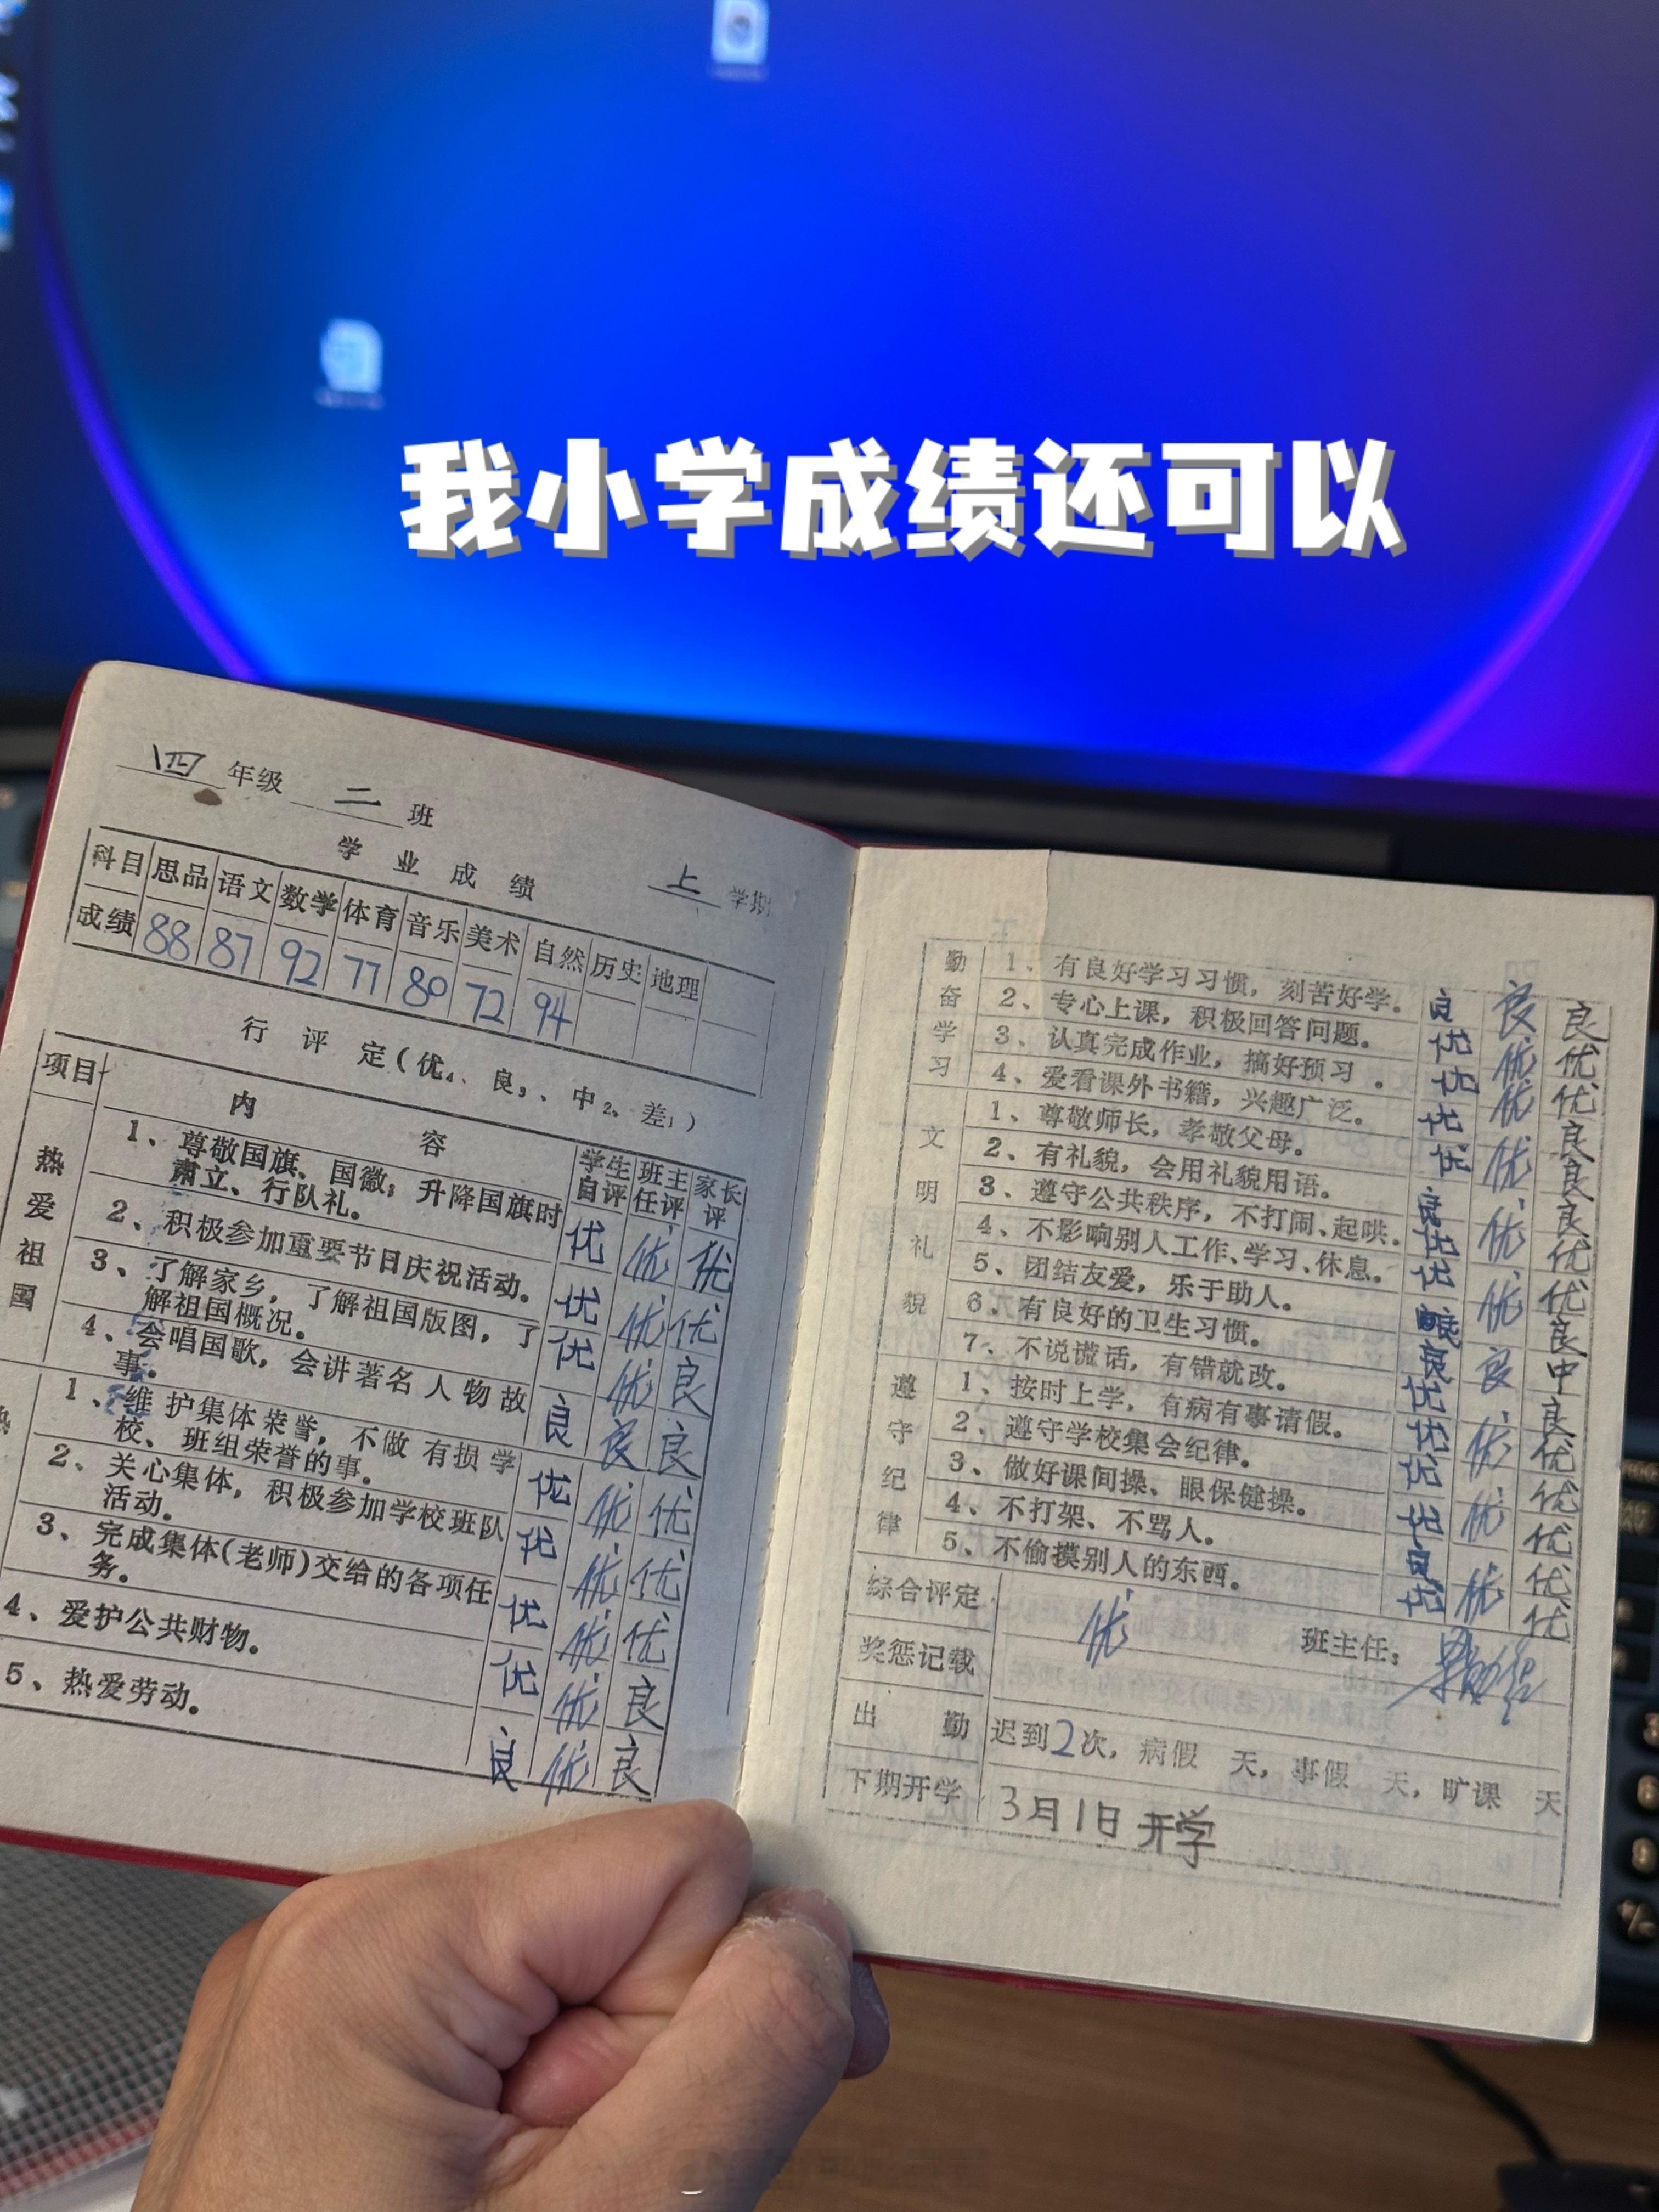 我小学成绩还可以
四 年级 二 班
学业成绩 上 学期
科目 思品 语文 数学 体育 音乐 美术 自然 历史 地理
成绩 88 87 92 77 80 72 94
行评定(优4、良3、中2、差1)
项目 内容 学生自评 班主任评 家长评
热爱祖国
1、尊敬国旗、国徽;升降国旗时
肃立、行队礼。 优 优 优
2、积极参加重要节日庆祝活动。 优 优 优
3、了解家乡,了解祖国版图,了
解祖国概况。 优 优 良
4、会唱国歌,会讲著名人物故
事。 良 良 良
热
1、维护集体荣誉,不做有损学
校、班组荣誉的事。 优 优 优
2、关心集体,积极参加学校班队
活动。 优 优 优
3、完成集体(老师)交给的各项任
务。 优 优 优
4、爱护公共财物。 优 优 良
5、热爱劳动。 良 优 良
勤奋学习
1、有良好学习习惯,刻苦好学。 良 良 良
2、专心上课,积极回答问题。 优 优 优
3、认真完成作业,搞好预习。 优 优 优
4、爱看课外书籍,兴趣广泛。 优 良
文明礼貌
1、尊敬师长,孝敬父母。 优 优 良
2、有礼貌,会用礼貌用语。 良 良
3、遵守公共秩序,不打闹、起哄。 优 优 优
4、不影响别人工作、学习、休息。 优 优
5、团结友爱,乐于助人。 优 良
6、有良好的卫生习惯。 良 良 中
7、不说谎话,有错就改。 优 良
遵守纪律
1、按时上学,有病有事请假。 优 优 优
2、遵守学校集会纪律。 优 优
3、做好课间操、眼保健操。 优 优 优
4、不打架、不骂人。 良 优
5、不偷摸别人的东西。 优 优 优
综合评定 优 班主任:
奖惩记载
出勤 迟到2次,病假 天,事假 天,旷课 天
下期开学 3月1日开学